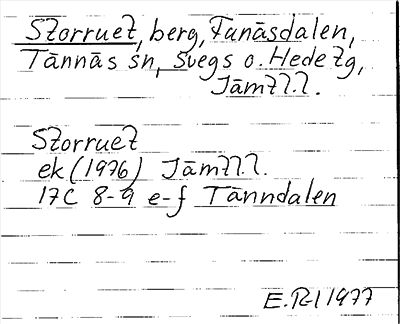 Storruet, berg, Funäsdalen,
Tännäs sn, Svegs o. Hede tg,
Jämtl.l.
Storruet
ek (1976) Jämtl.l.
17C 8-9 e-f Tänndalen
E.R-l 1977